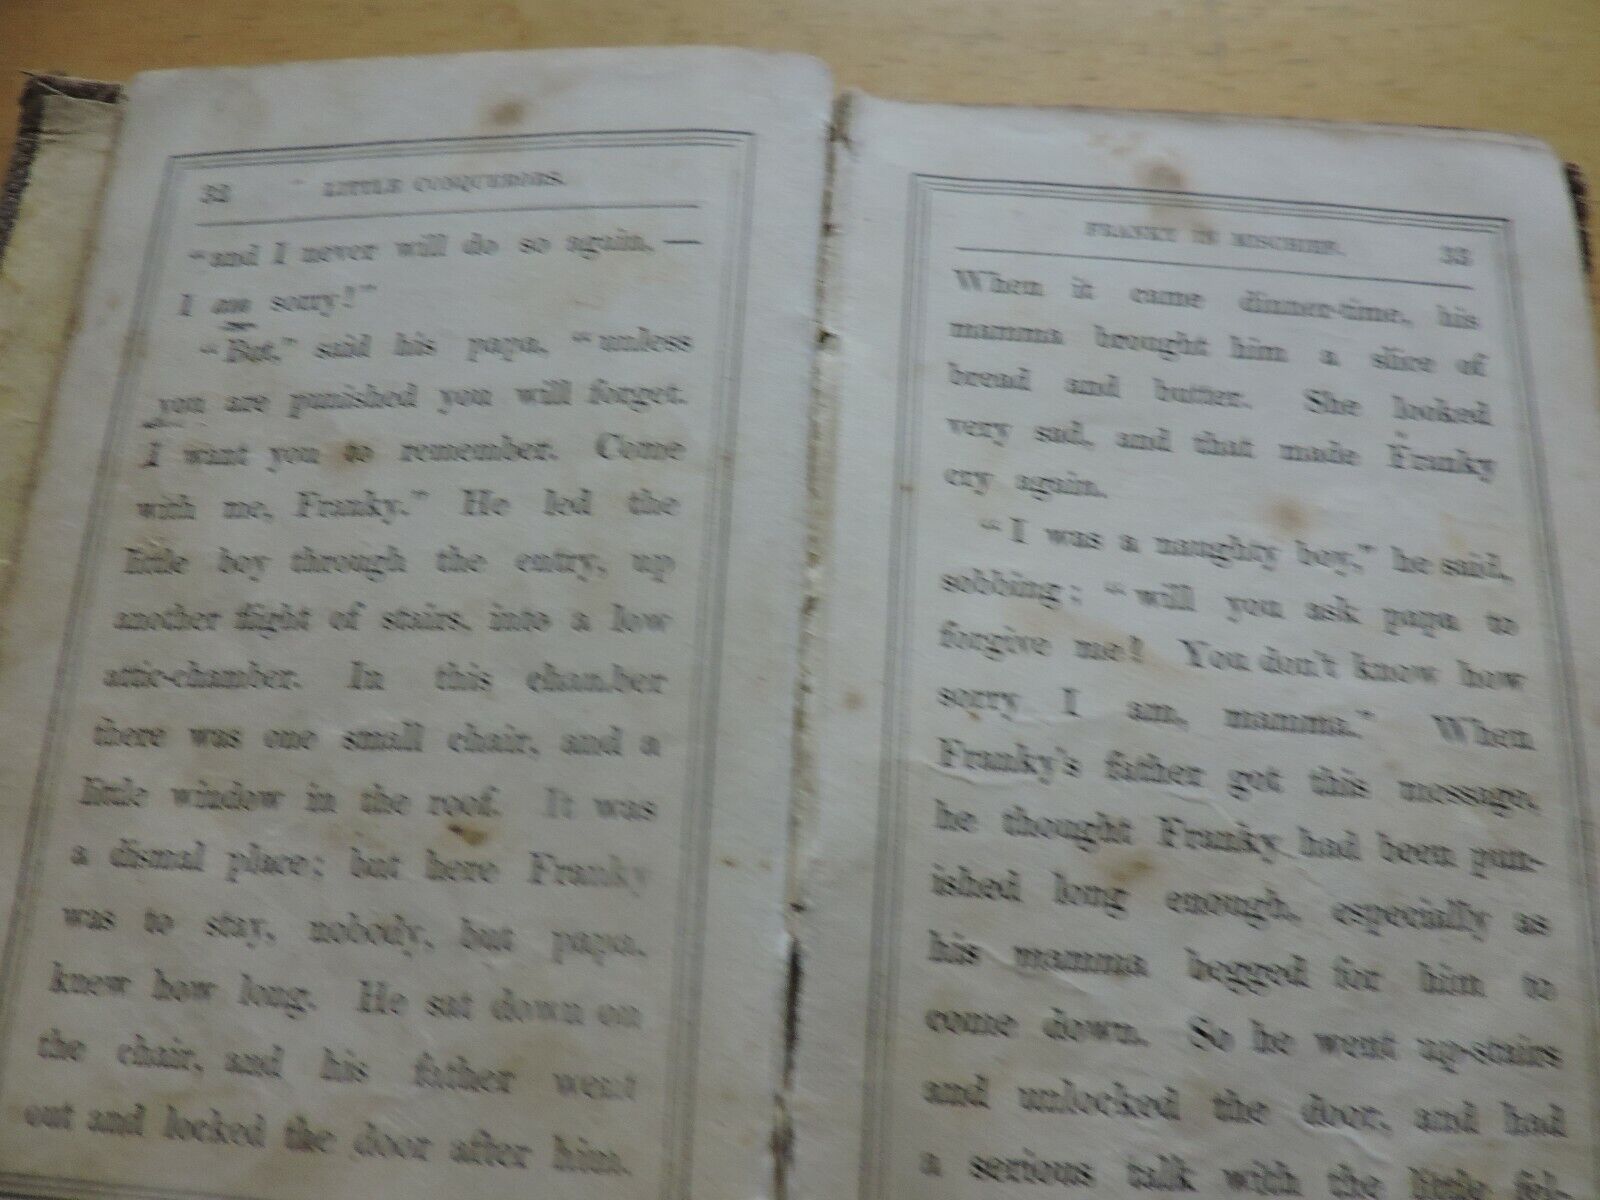 32 LITTLE CONQUERORS.
"and I never will do so again, —
I am sorry!"
"But," said his papa, "unless
you are punished you will forget.
I want you to remember. Come
with me, Franky." He led the
little boy through the entry, up
another flight of stairs, into a low
attic-chamber. In this chamber
there was one small chair, and a
little window in the roof. It was
a dismal place; but here Franky
was to stay, nobody, but papa,
knew how long. He sat down on
the chair, and his father went
out and locked the door after him.
FRANKY IN MISCHIEF. 33
When it came dinner-time, his
mamma brought him a slice of
bread and butter. She looked
very sad, and that made Franky
cry again.
"I was a naughty boy," he said,
sobbing; "will you ask papa to
forgive me! You don't know how
sorry I am, mamma." When
Franky's father got this message,
he thought Franky had been pun-
ished long enough, especially as
his mamma begged for him to
come down. So he went up-stairs
and unlocked the door, and had
a serious talk with the little fel-